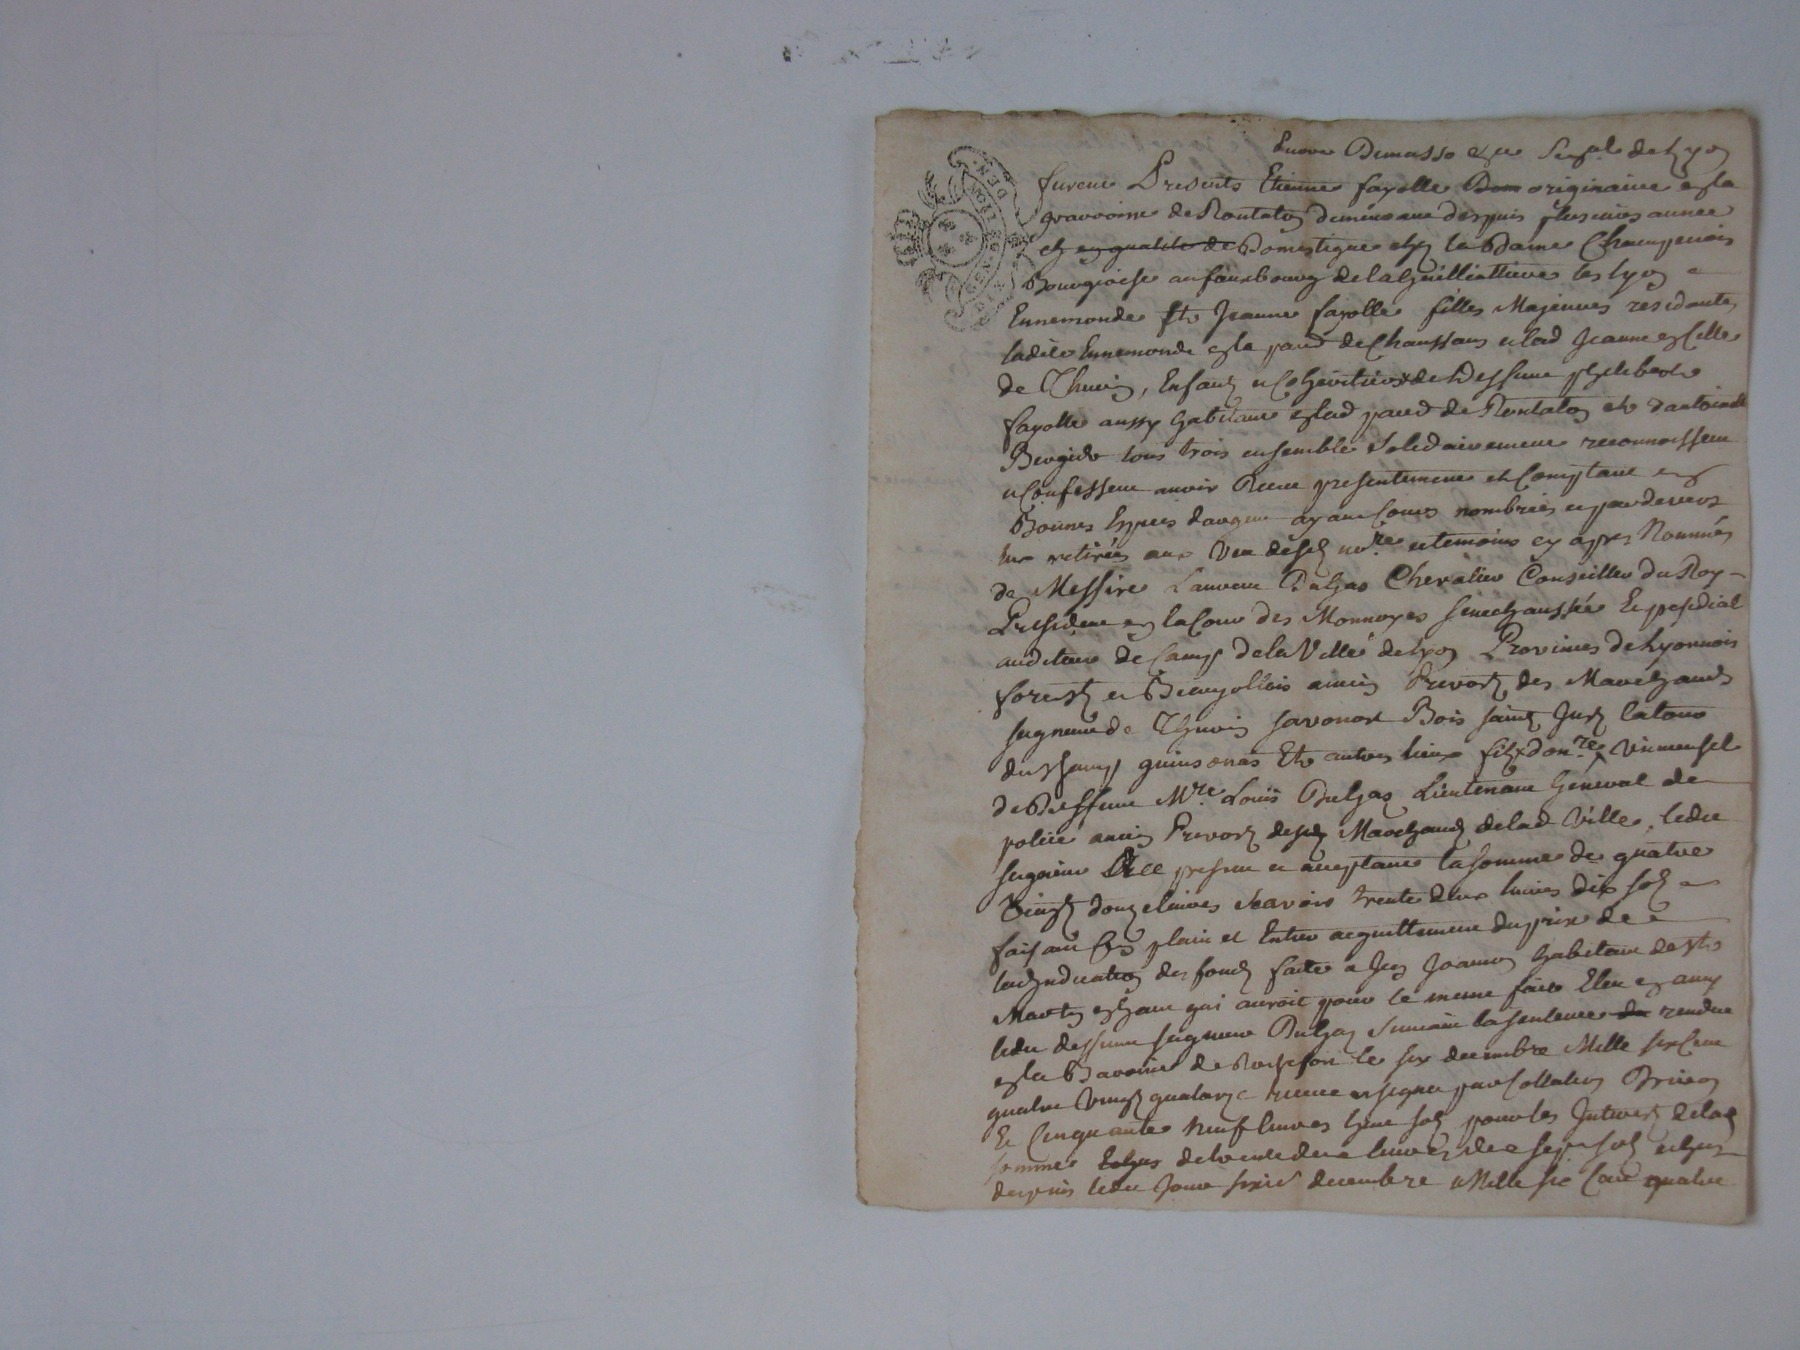 furent Presents Etienne fayolle originaire en la
parroisse de Rontalon demeurant despuis plusieurs année
et en qualité de Domestique chez la Dame Champenois
Bourgioise au fauxbourg de la Guilliottiere les lyon
Ennemonde Et Jeanne fayolle filles Majeures residantes
ladite Ennemonde en la parr de Chaussans et lad Jeanne en Celle
de Thurin, Enfans et Coheritiers de Deffunt
fayolle aussy habitant en lad parr de Rontalon et d'antoinette
tous trois ensemble solidairement reconnoissent
et Confessent avoir Receu presentement et Comptant en
Bonnes Espces d'argent ayant Cours nombrées et par devers
Eux retirées aux Veu desd no.re et temoins cy apres Nommés
de Messire Laurent Dugas Chevalier Conseiller du Roy
President en la Cour des Monnoyes senechaussée Et presidial
auditeur de Camp de la Ville de lyon Provinces de Lyonnois
forest et Beaujollois ancien Prevost des Marchands
seigneur de Thurin savonost Bois saint Just la tour
du Champ quinsonas Et autres lieux fils
de Deffunt M.re Louis Dugas Lieutenant General de
police ancien Prevost des Marchands de lad Ville, ledit
seigneur present et acceptant la somme de quatre
Vingt douze livres scavoir trente deux livres dix sols
faisant plain et Entier acquittement du prix de
des fonds faite a Joannon habitant de St
Martin qui auroit pour le meme fait Eleu en amy
ledit deffunt seigneur Dugas suivant la sentence rendue
en la Baronnie de Rochefort le six decembre Mille six Cent
quatre Vingt quatorze signée par Collation
Et Cinquante Neuf livres sols pour les Interest de lad
somme de trente deux livres sols
depuis ledit Jour sixie decembre Mille six Cent quatre